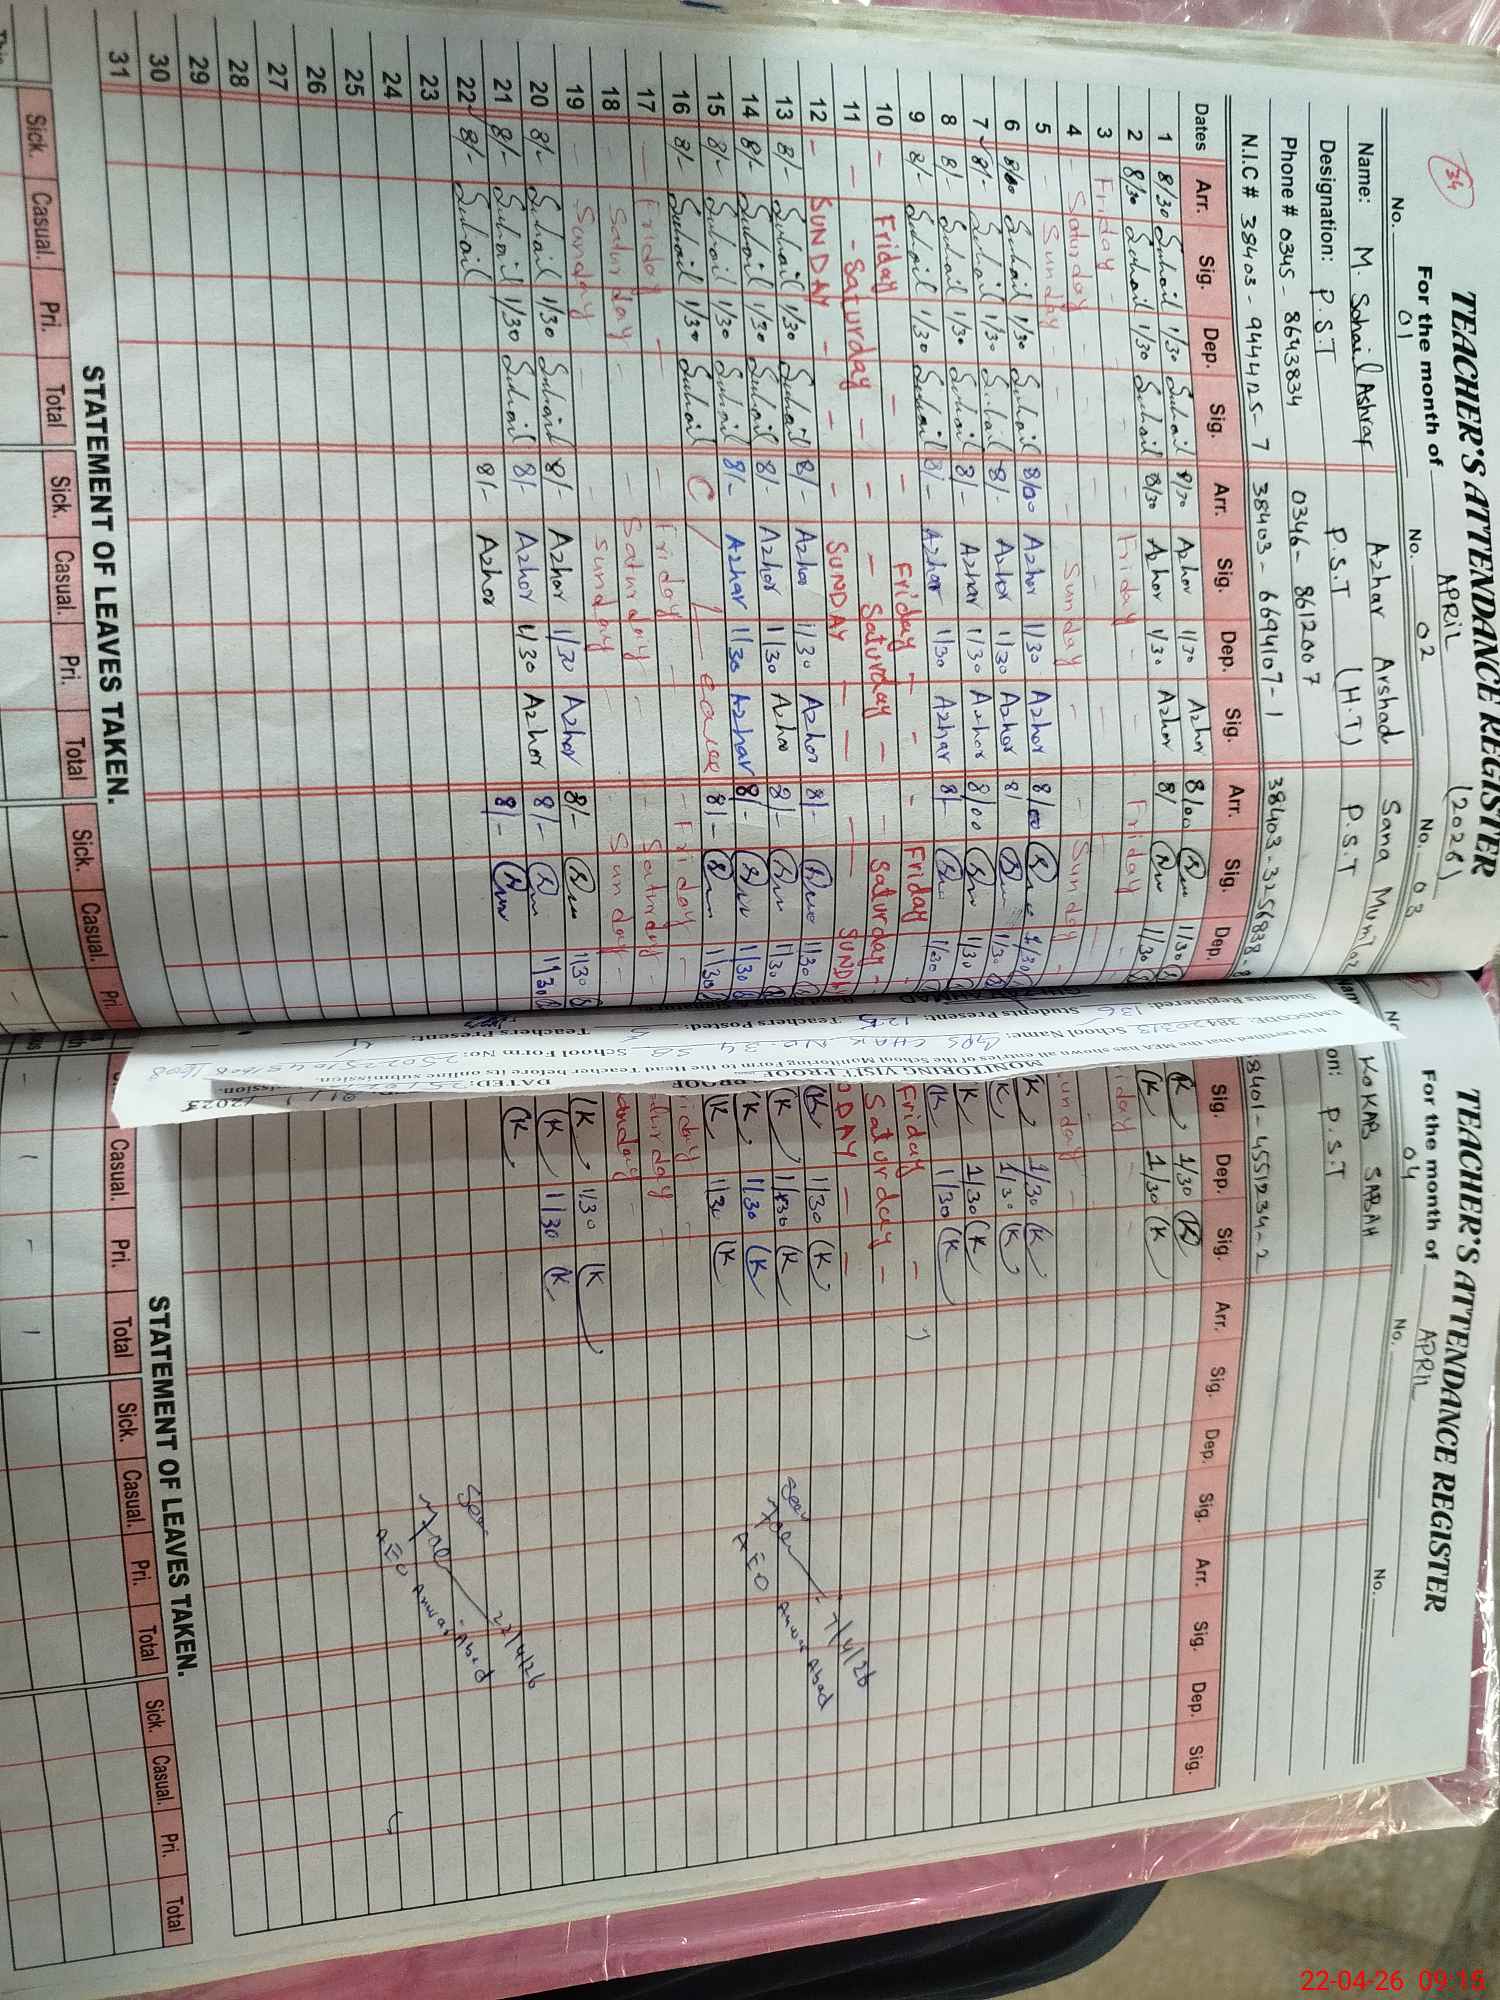 34
TEACHER'S ATTENDANCE REGISTER
For the month of APRIL (2026)
No. 01 No. 02 No. 03
Name: M. Sohail Ashraf Azhar Arshad Sana Mumtaz
Designation: P.S.T P.S.T (H.T) P.S.T
Phone # 0345-8643834 0346-8612007
N.I.C # 38403-9444125-7 38403-6694107-1 38403-3256838-8
Dates Arr. Sig. Dep. Sig. Arr. Sig. Dep. Sig. Arr. Sig. Dep.
1 8/30 Suhail 1/30 Suhail 8/30 Azhar 1/30 Azhar 8/00 1/30
2 8/30 Suhail 1/30 Suhail 8/30 Azhar 1/30 Azhar 8/ 1/30
3 Friday - Friday - Friday
4 - Saturday -
5 - Sunday - Sunday - Sunday
6 8/00 Suhail 1/30 Suhail 8/00 Azhar 1/30 Azhar 8/00 1/30
7 8/- Suhail 1/30 Suhail 8/- Azhar 1/30 Azhar 8/ 1/30
8 8/- Suhail 1/30 Suhail 8/- Azhar 1/30 Azhar 8/00 1/30
9 8/- Suhail 1/30 Suhail 8/- Azhar 1/30 Azhar 8/- 1/30
10 - Friday - - Friday - - Friday
11 - Saturday - - Saturday - - Saturday -
12 - SUNDAY - - SUNDAY - - SUNDA
13 8/- Suhail 1/30 Suhail 8/- Azhar 1/30 Azhar 8/- 1/30
14 8/- Suhail 1/30 Suhail 8/- Azhar 1/30 Azhar 8/- 1/30
15 8/- Suhail 1/30 Suhail 8/- Azhar 1/30 Azhar 8/- 1/30
16 8/- Suhail 1/30 Suhail C/Leave 8/- 1/30
17 - Friday - - Friday - - Friday -
18 - Saturday - - Saturday - - Saturday -
19 - Sunday - - Sunday - - Sunday -
20 8/- Suhail 1/30 Suhail 8/- Azhar 1/30 Azhar 8/- 1/30
21 8/- Suhail 1/30 Suhail 8/- Azhar 1/30 Azhar 8/- 1/30
22 8/- Suhail 8/- Azhar 8/-
23
24
25
26
27
28
29
30
31
STATEMENT OF LEAVES TAKEN.
Sick. Casual. Pri. Total Sick. Casual. Pri. Total Sick. Casual. Pri.
MONITORING VISIT PROOF
It is certified that the MEA has shown all entries of the School Monitoring Form to the Head Teacher before its online submission.
EMISCODE: 38420313 School Name: GPS CHAK NO. 34 SB
Students Registered: 136 Students Present: 125 Teachers Posted: 5
Teachers Present:
TEACHER'S ATTENDANCE REGISTER
For the month of APRIL
04 No. No.
KOKAB SABAH
on: P.S.T
8401-4551234-2
Sig. Dep. Sig. Arr. Sig. Dep. Sig. Arr. Sig. Dep. Sig.
K 1/30 K
K 1/30 K
riday
unday
K 1/30 K
K 1/30 K
K 1/30 K
K 1/30 K
Friday -
Saturday -
DAY -
K 1/30 K
K 1/30 K
K 1/30 K
K 1/30 K
riday -
turday -
unday -
K 1/30 K
K 1/30 K
K
Seen
7/4/26
AEO Anwar Abad
Seen
22/4/26
AEO Anwar Abad
STATEMENT OF LEAVES TAKEN.
Casual. Pri. Total Sick. Casual. Pri. Total Sick. Casual. Pri. Total
22-04-26 09:15